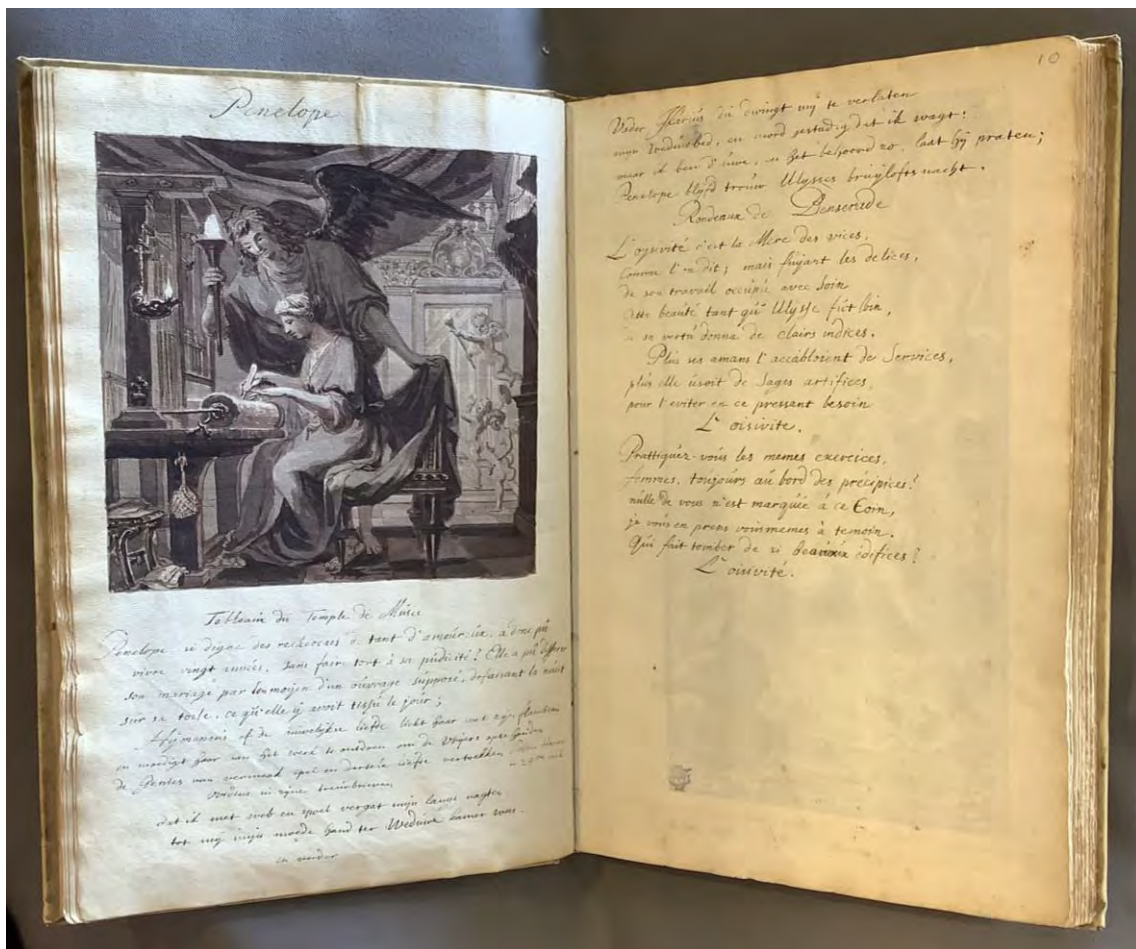 Penelope
Tableau du Temple de Muses
Penelope si digne des recherches de tant d'amoureux, a donc pû
vivre vingt années, sans faire tort à sa pudicité! Elle a pû differer
son mariage par le moijen d'un ouvrage supposé, defaisant la nuit
sur sa toile, ce qu'elle ÿ avoit tissu le jour;
of de huwelijkse liefde licht haar met zijn flambeau
en moedigt haar aan het werk te ontdoen om de Vrijers op te houden
de Genies van vermaak spel en dertele liefde vertrekken
Ovidius in zijne treurbrieven
dat ik met web en spoel vergat mijn lange nagten
tot mij mijn moede hand ter Weduwe kamer
en verder
10
Vader Ikarius dú dwingt mij te verlaten
mijn Weduwbed, en word gestadig dat ik wagt:
maar ik ben d'uwe, en het behoord zo, laat hij praten;
Penelope blijfd trouw Ulysses bruijlofts nacht.
Rondeaux de Benserade
L'oysivité c'est la Mere des vices,
comme l'on dit; mais fuijant les delices,
de son travail occupée avec soin
cette beauté tant qu'Ulysse fut loin,
de sa vertú donna de clairs indices.
Plus ses amans l'accabloient de Services,
plus elle úsoit de Sages artifices,
pour l'eviter en ce pressant besoin
L'oisivite.
Prattiquéz-vous les memes exercices,
femmes, toujours aú bord des precipices!
núlle de vous n'est marquée à ce Coin,
je vous en prens vousmemes à temoin.
Qui fait tomber de si beaux edifices?
L'oisivité.